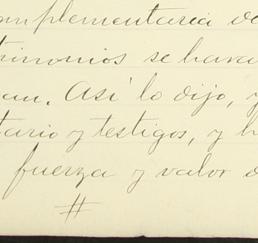 mplementaria de
rimonios se hara
an. Así lo dijo, y
tario y testigos, y h
fuerza y valor d
#